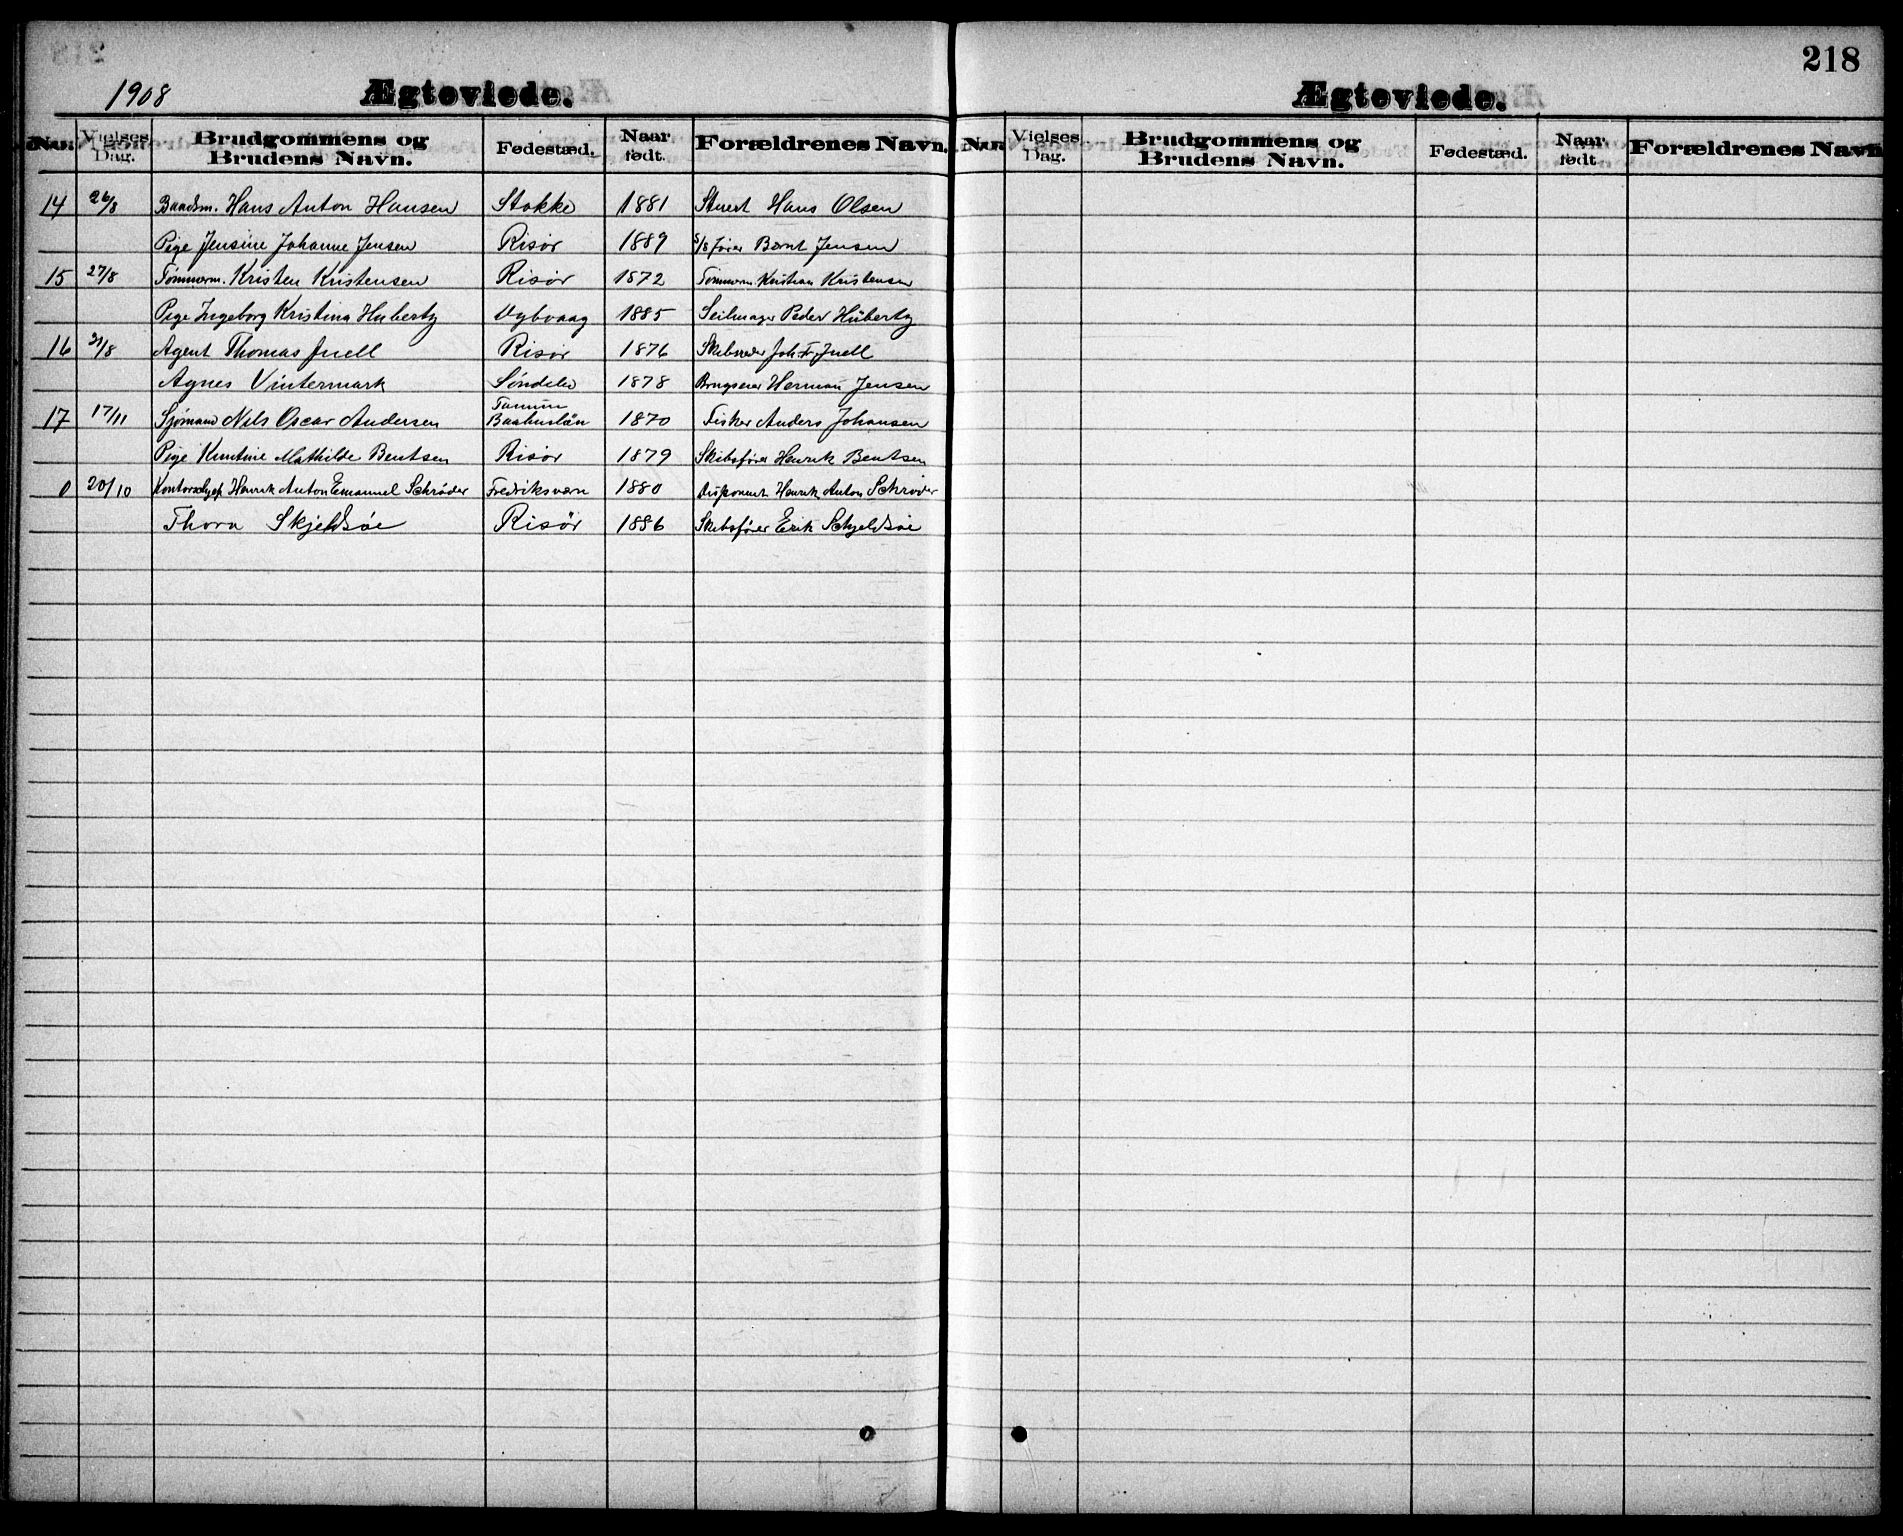 218
1908 Ægteviede.
Ægteviede.
No. Vielses Dag. Brudgommens og Brudens Navn. Fødestæd. Naar født. Forældrenes Navn.
No. Vielses Dag. Brudgommens og Brudens Navn. Fødestæd. Naar født. Forældrenes Navn
14 26/8 Baadsm. Hans Anton Hansen Stokke 1881 Stuert Hans Olsen
Pige Jensine Johanne Jensen Risør 1889 S/S fører Bernt Jensen
15 27/8 Tømmerm. Kristen Kristensen Risør 1872 Tømmerm. Kristian Kristensen
Pige Ingeborg Kristina Huberty Dybvaag 1885 Seilmager Peder Hüberty
16 31/8 Agent Thomas Juell Risør 1876 Skibsreder Joh. Fr. Juell
Agnes Vintermark Søndelev 1878 Brugseier Herman Jensen
17 17/11 Sjømand Nils Oscar Andersen Tanum Baahuslän 1870 Fisker Anders Johansen
Pige Kintine Mathilde Bentsen Risør 1879 Skibsfører Henrik Bentsen
0 20/10 Kontorchef Henrik Anton Emanuel Schrøder Fredriksværn 1880 Disponent Henrik Anton Schrøder
Thora Skjeldsøe Risör 1886 Skibsfører Erik Schjeldsøe